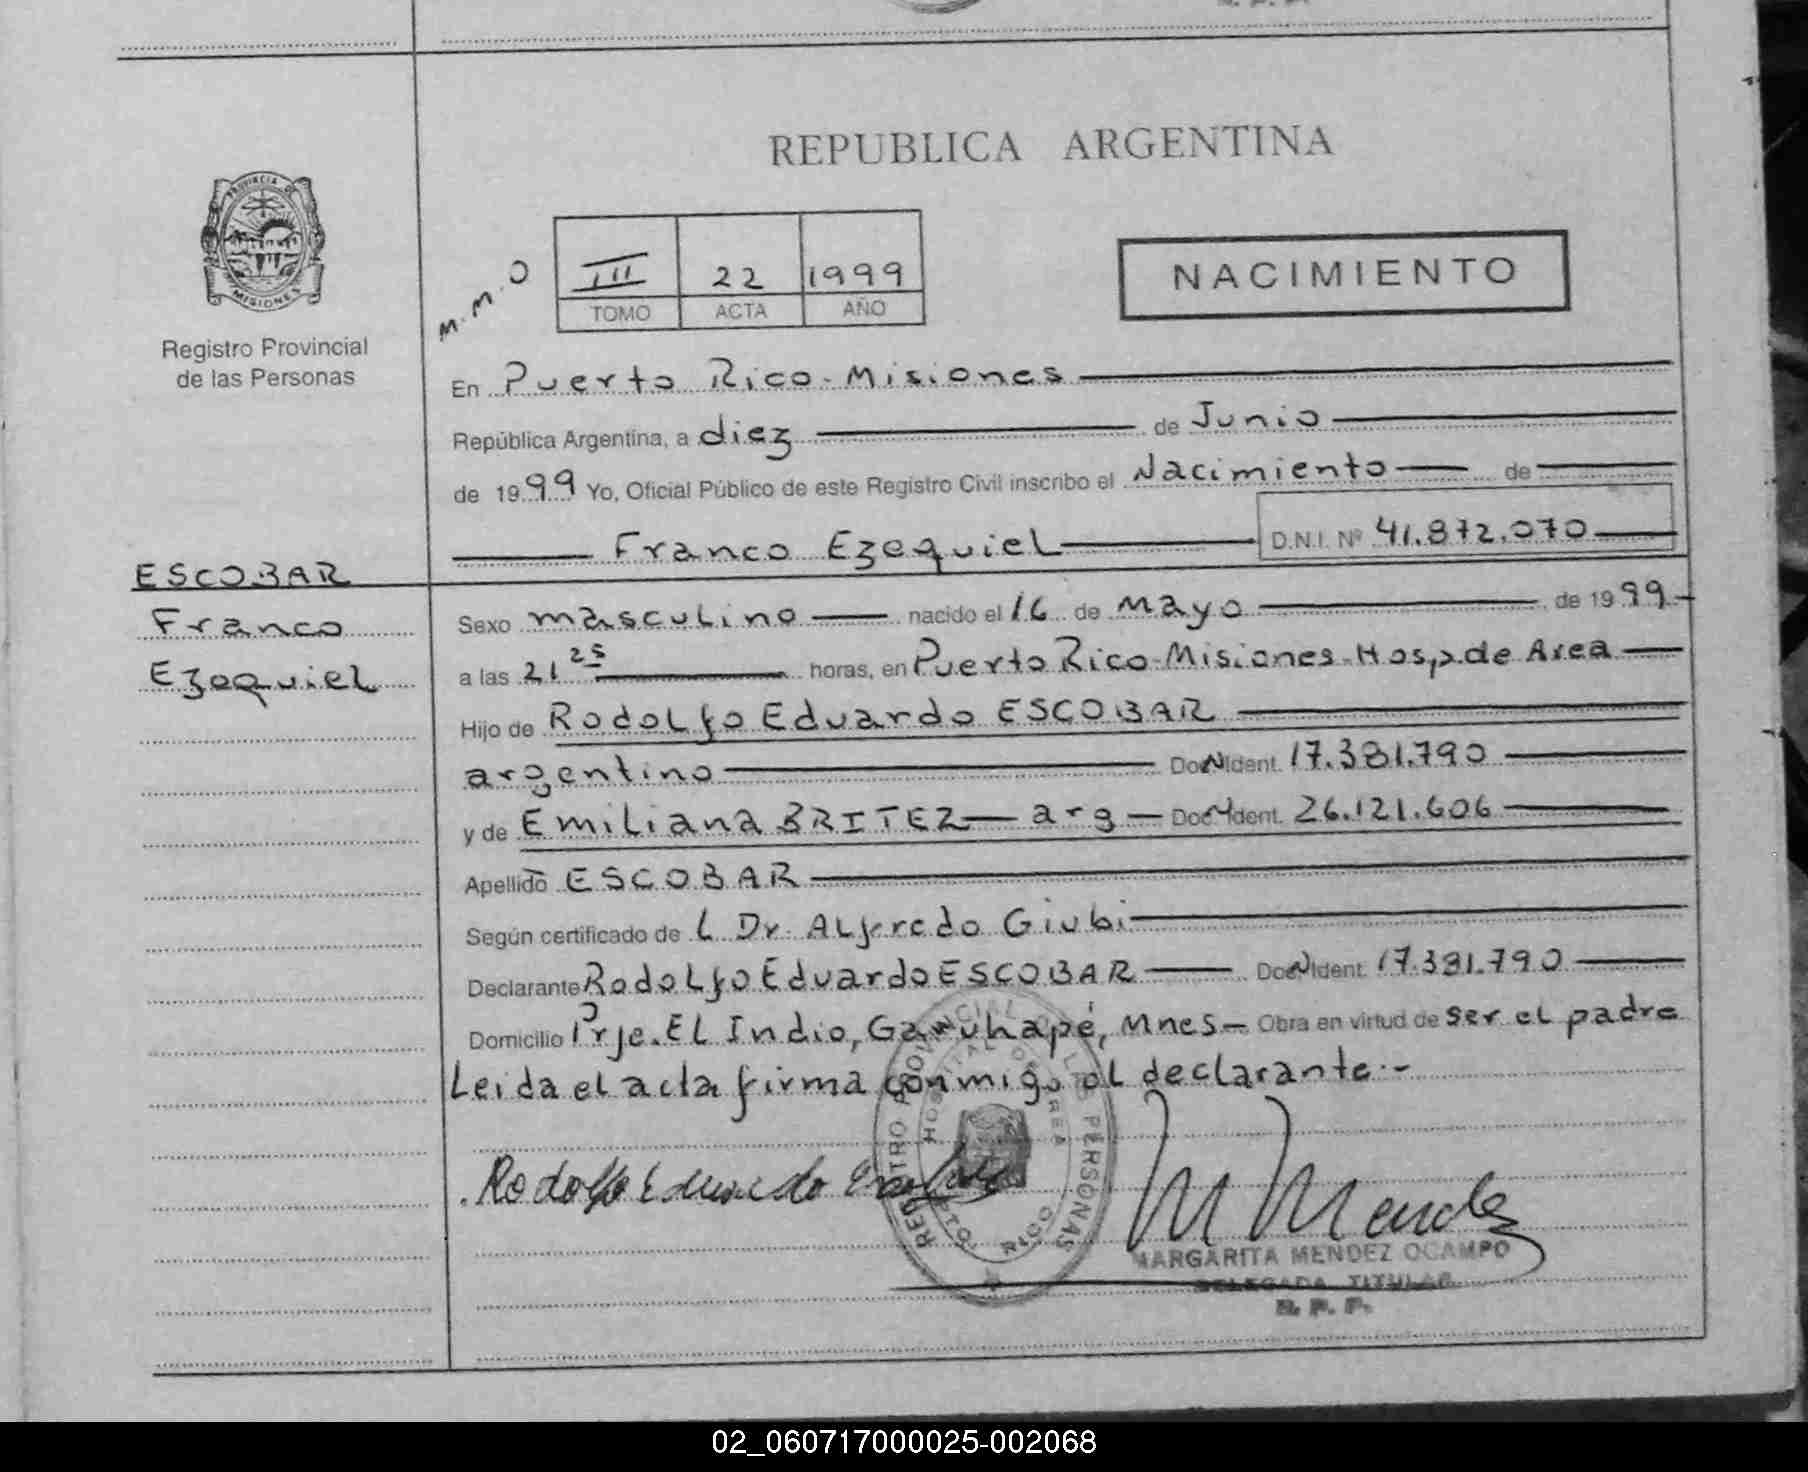 REPUBLICA ARGENTINA
PROVINCIA DE
MISIONES
Registro Provincial
de las Personas
M.M.O
III 22 1999
TOMO ACTA AÑO
NACIMIENTO
En Puerto Rico - Misiones
República Argentina, a diez de Junio
de 1999 Yo, Oficial Público de este Registro Civil inscribo el Nacimiento de
Franco Ezequiel D.N.I. Nº 41.872.070
ESCOBAR
Franco
Ezequiel
Sexo masculino nacido el 16 de Mayo de 1999
a las 21 25 horas, en Puerto Rico - Misiones - Hosp. de Area
Hijo de Rodolfo Eduardo ESCOBAR
argentino Doc N Ident. 17.381.790
y de Emiliana BRITEZ - arg - Doc N Ident. 26.121.606
Apellido ESCOBAR
Según certificado de L Dr. Alfredo Giubi
Declarante Rodolfo Eduardo ESCOBAR Doc N Ident. 17.381.790
Domicilio Prje. El Indio, Garuhapé, Mnes - Obra en virtud de ser el padre
Leida el acta firma conmigo el declarante.-
REGISTRO PROVINCIAL DE LAS PERSONAS
HOSPITAL DE AREA
PTO. RICO
Rodolfo Eduardo Escobar
M Mendez
MARGARITA MENDEZ OCAMPO
DELEGADA TITULAR
R. P. P.
02_060717000025-002068